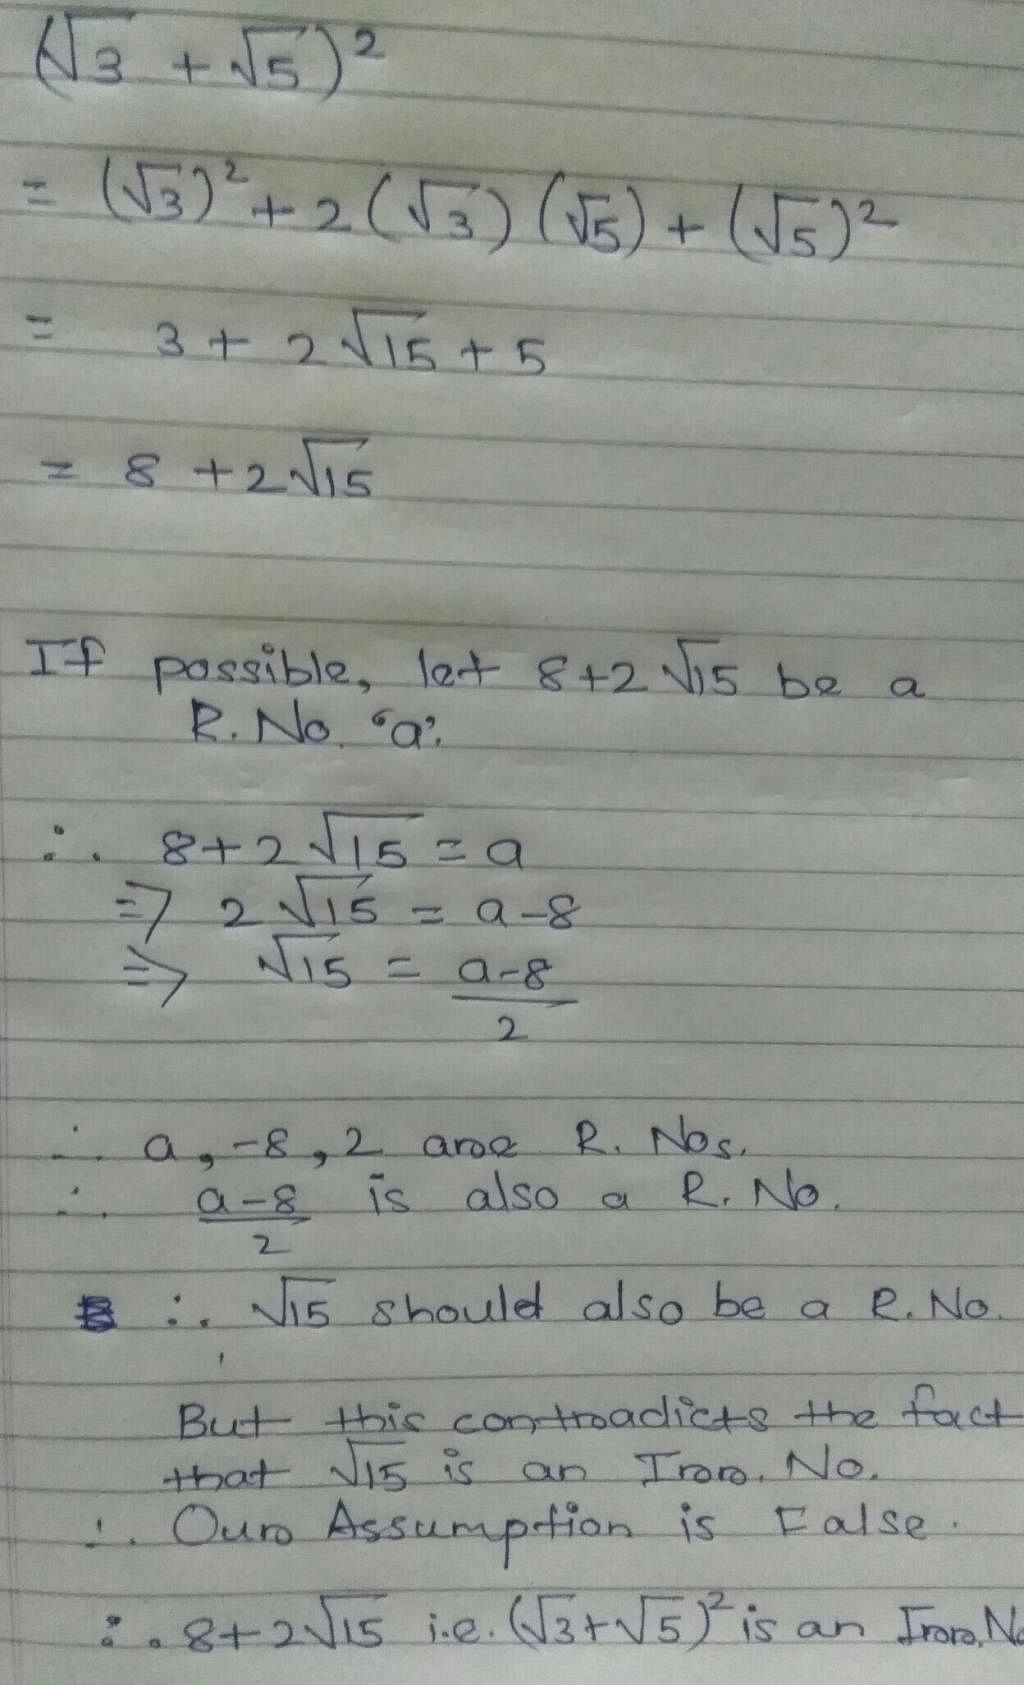 (√3 + √5)²
= (√3)² + 2(√3)(√5) + (√5)²
= 3 + 2√15 + 5
= 8 + 2√15
If possible, let 8+2√15 be a
R. No. "a".
∴ 8+2√15 = a
⇒ 2√15 = a-8
⇒ √15 = (a-8)/2
∴ a, -8, 2 are R. Nos.
∴ (a-8)/2 is also a R. No.
∴ √15 should also be a R. No.
But this contradicts the fact
that √15 is an Irr. No.
∴ Our Assumption is False.
∴ 8+2√15 i.e. (√3+√5)² is an Irr. No